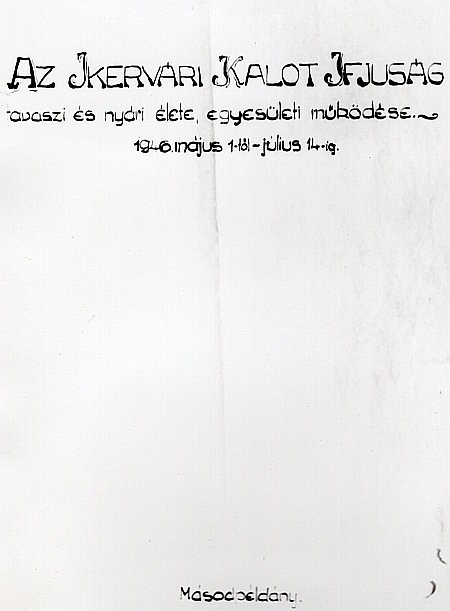 Az Ikervári Kalot Ifjuság
tavaszi és nyári élete, egyesületi működése.~
1946. május 1-től - július 14-ig.
Másodpéldány.